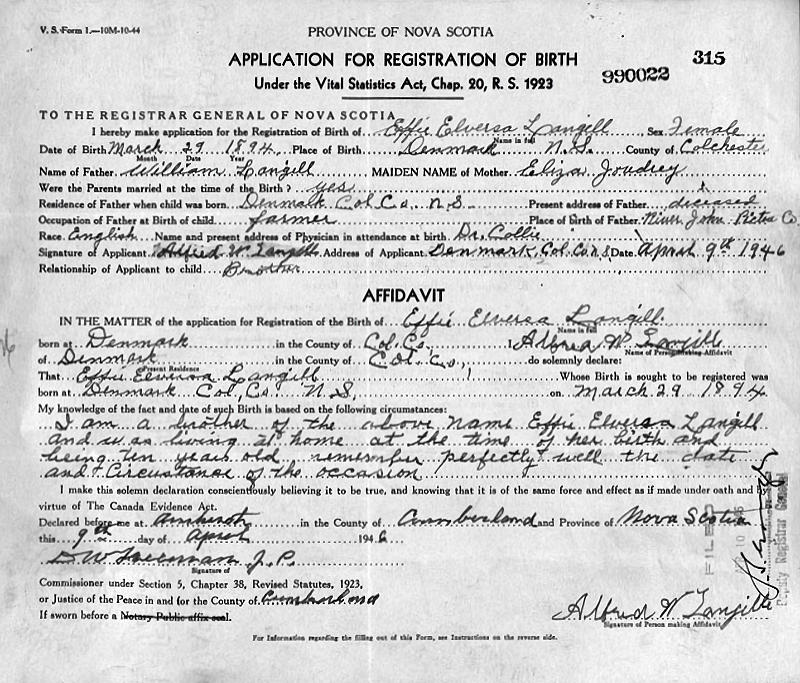 V. S. Form 1.—10M-10-44
PROVINCE OF NOVA SCOTIA
APPLICATION FOR REGISTRATION OF BIRTH 990022 315
Under the Vital Statistics Act, Chap. 20, R. S. 1923
TO THE REGISTRAR GENERAL OF NOVA SCOTIA
I hereby make application for the Registration of Birth of Effie Elversa Langill Sex Female
Name in full
Date of Birth March 29 1894 Place of Birth Denmark N.S. County of Colchester
Month Date Year
Name of Father William Langill MAIDEN NAME of Mother Eliza Joudrey
Were the Parents married at the time of the Birth? yes
Residence of Father when child was born Denmark Col Co. N.S. Present address of Father diseased
Occupation of Father at Birth of child farmer Place of birth of Father River John Pictou Co
Race English Name and present address of Physician in attendance at birth Dr. Collie
Signature of Applicant Alfred W Langill Address of Applicant Denmark, Col. Co N S Date April 9th 1946
Relationship of Applicant to child Brother
AFFIDAVIT
IN THE MATTER of the application for Registration of the Birth of Effie Elversa Langill.
Name in full
born at Denmark in the County of Col. Co., Alfred W Langille
Name of Person making Affidavit
of Denmark in the County of Col. Co., do solemnly declare:
Present Residence
That Effie Elversa Langill Whose Birth is sought to be registered was
born at Denmark Col. Co. N.S. on March 29 1894
My knowledge of the fact and date of such Birth is based on the following circumstances:
I am a brother of the above name Effie Elversa Langill
and was living at home at the time of her birth and
being ten years old, remember perfectly well the date
and Circustance of the occasion
I make this solemn declaration conscientiously believing it to be true, and knowing that it is of the same force and effect as if made under oath and by
virtue of The Canada Evidence Act.
Declared before me at Amherst in the County of Cumberland and Province of Nova Scotia
this 9th day of April 1946
J. P.
Signature of
Commissioner under Section 5, Chapter 38, Revised Statutes, 1923,
or Justice of the Peace in and for the County of Cumberland
If sworn before a Notary Public affix seal.
Alfred W Langille
Signature of Person making Affidavit
For Information regarding the filling out of this Form, see Instructions on the reverse side.
FILED
Deputy Registrar General